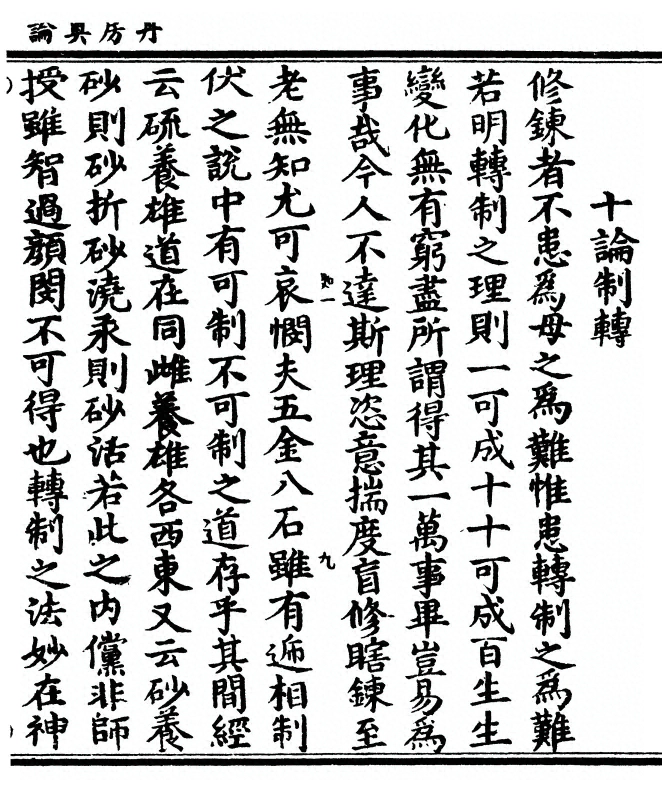 丹房奧論
十論制轉
修鍊者不患爲母之爲難惟患轉制之爲難
若明轉制之理則一可成十十可成百生生
變化無有窮盡所謂得其一萬事畢豈易爲
事哉今人不達斯理恣意揣度盲修瞎鍊至
老無知尤可哀憫夫五金八石雖有逓相制
伏之說中有可制不可制之道存乎其間經
云硫養雄道在同雌養雄各西東又云砂養
砂則砂折砂澆汞則砂活若此之内儻非師
授雖智過顏閔不可得也轉制之法妙在神
知一
九